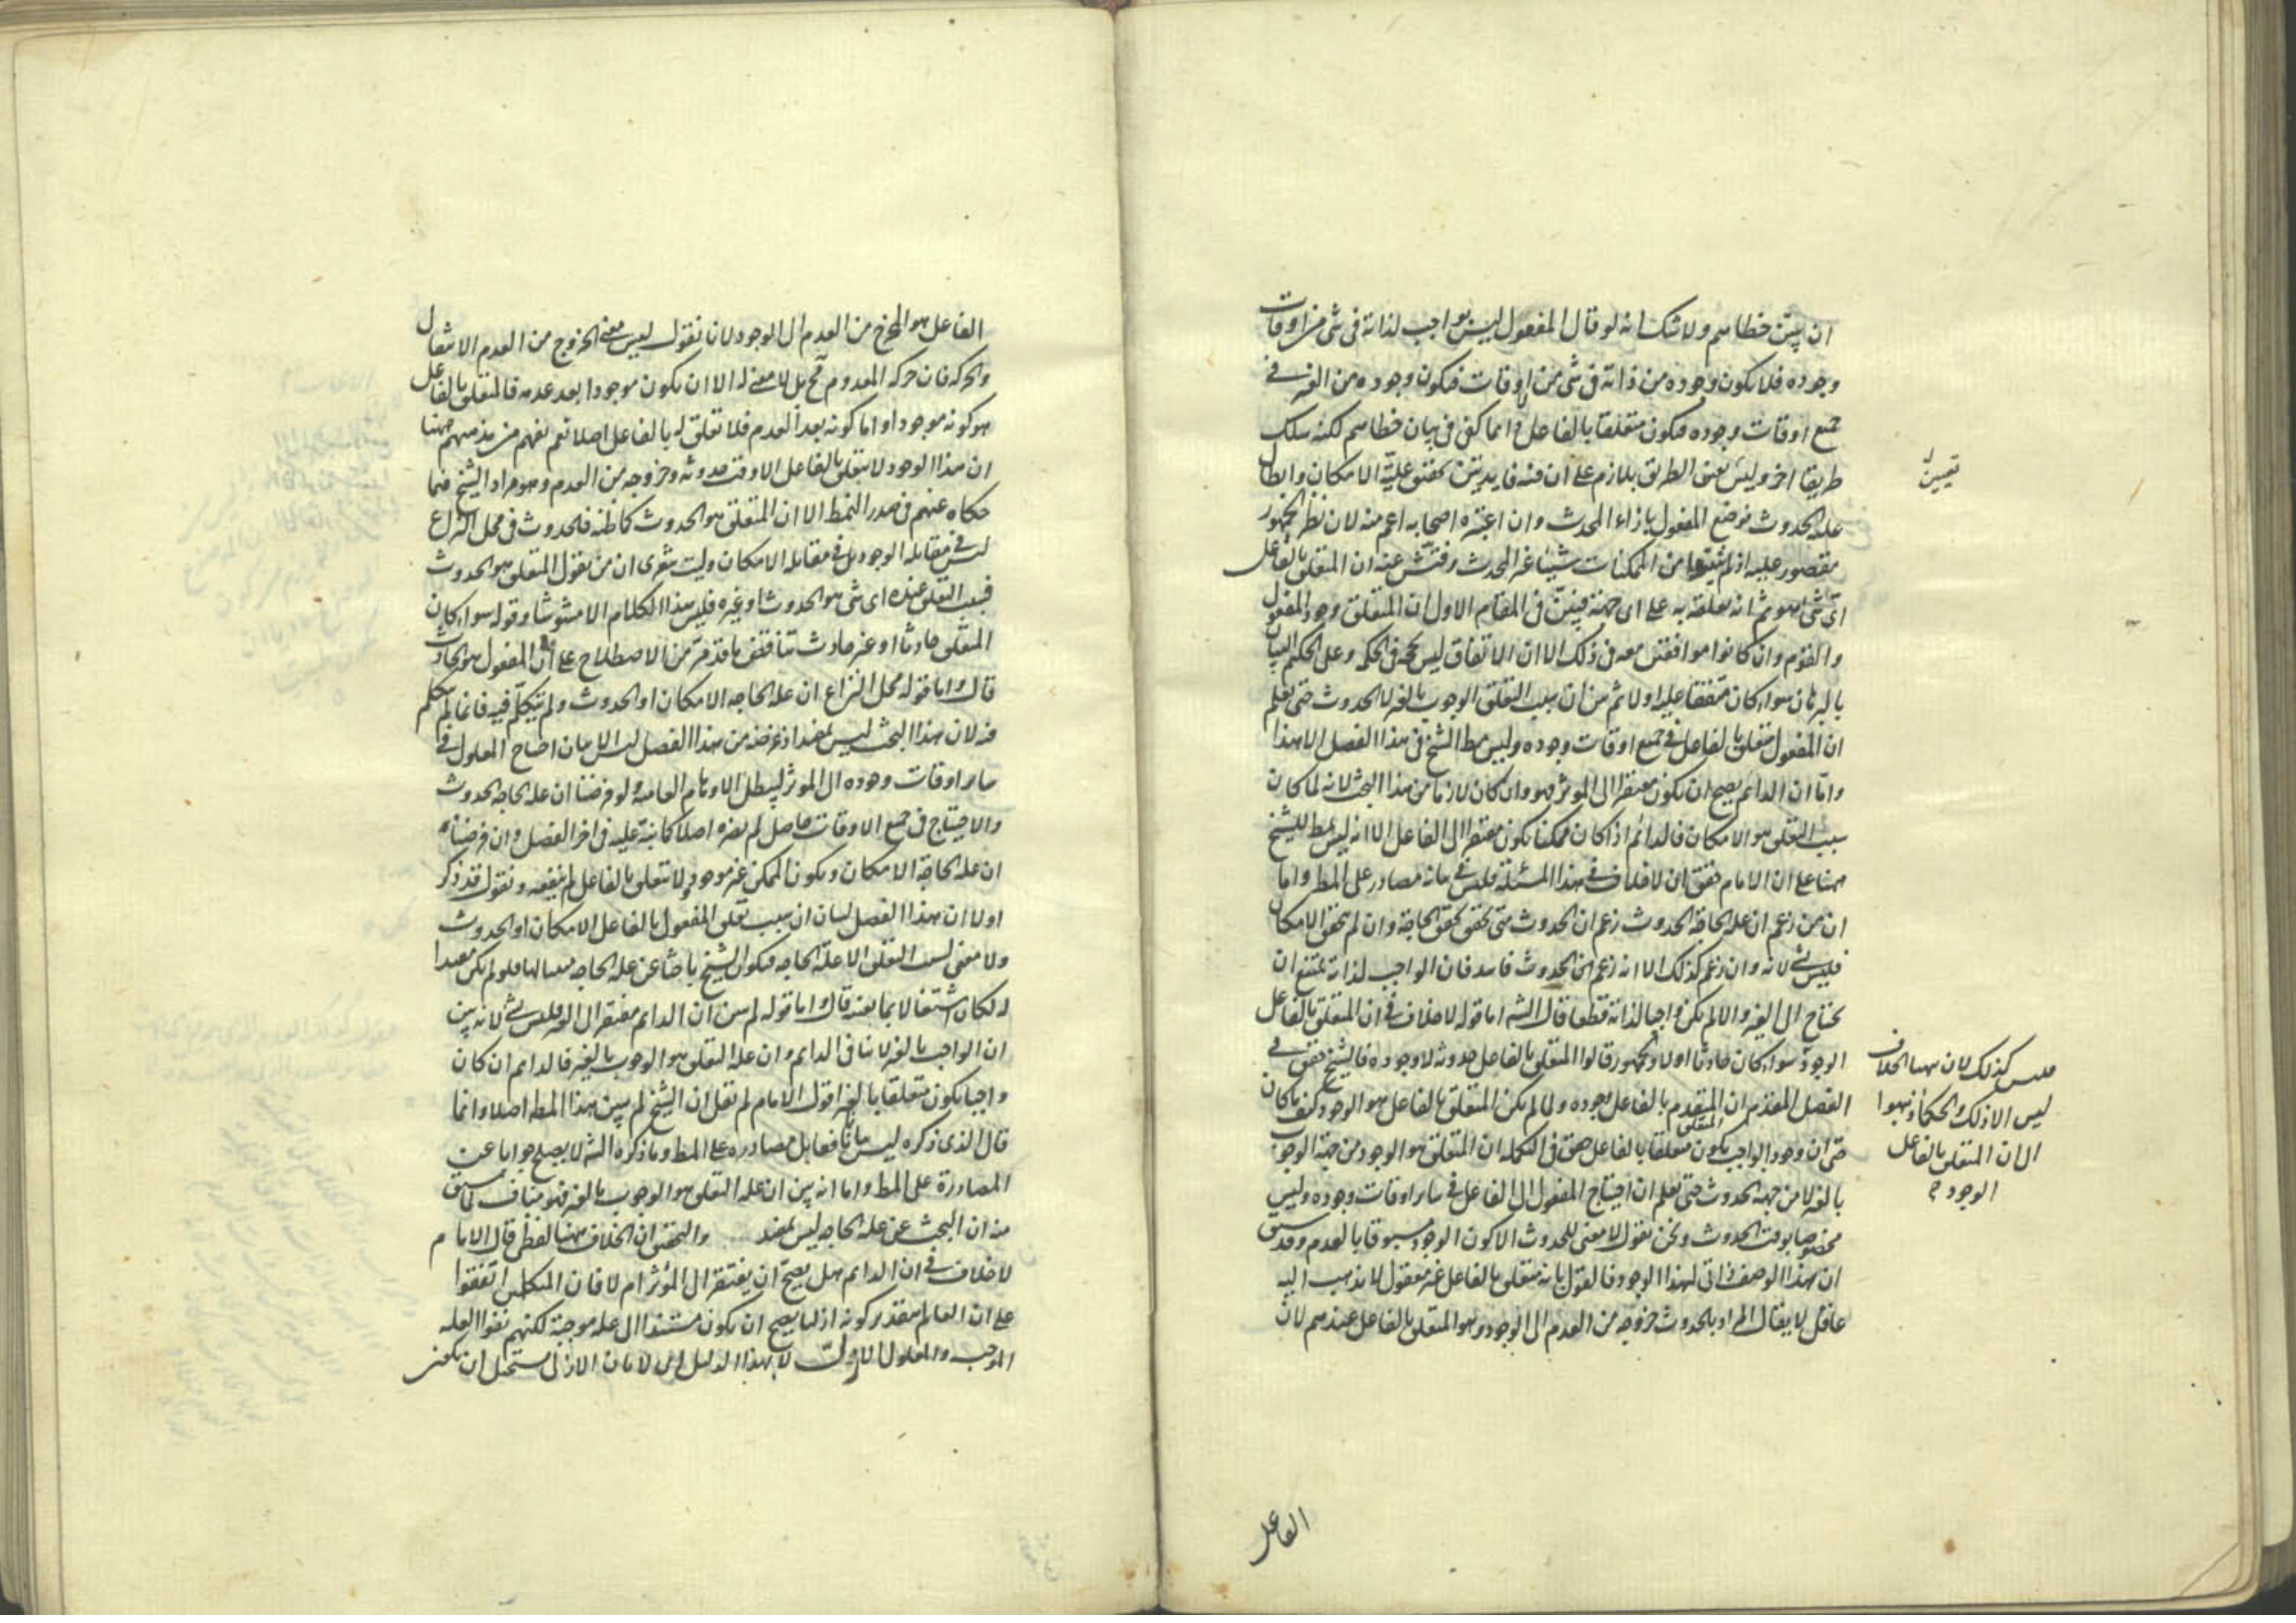 ان يبين خطاهم ولا شك انه لو قال المفعول ليس بواجب لذاته فى شى من اوقات
وجوده فلا يكون وجوده من ذاته فى شى من اوقات فيكون وجوده من الغير فى
جميع اوقات وجوده فيكون متعلقا بالفاعل دايما كفى فى بيان خطاهم لكنه سلك
طريقا اخر وليس تعين الطريق بلازم على ان فيه فايدتين تحقيق علية الامكان وابطال
علية الحدوث فوضع المفعول بازاء المحدث وان اعتبره اصحابه اعم منه لان نظر الجمهور
مقصور عليه اذ لم يثبتوا من الممكنات شيئا غير المحدث وفتش عنه ان المتعلق بالفاعل
اى شى هو ثم انه تعلقه به على اى جهة فبين فى المقام الاول ان المتعلق وجود المفعول
والقوم وان كانوا موافقين معه فى ذلك الا ان الاتفاق ليس بحجة فى الحكمة وعلى الحكيم البيان
بالبرهان سواء كان متفقا عليه اولا ثم بين ان سبب التعلق الوجوب بالغير لا الحدوث حتى يعلم
ان المفعول متعلق بالفاعل فى جميع اوقات وجوده وليس مط الشيخ فى هذا الفصل الا هذا
واما ان الدائم يصح ان يكون مفتقرا الى الموثر فهو وان كان لازما من هذا البحث لانه لما كان
سبب التعلق هو الامكان فالدائم اذا كان ممكنا يكون مفتقرا الى الفاعل الا انه ليس بمط للشيخ
ههنا على ان الامام حقق ان لا خلاف فى هذا المسئلة فليس فى بيانه مصادرة على المط واما
ان من زعم ان علة الحاجة الحدوث زعم ان الحدوث متى تحقق تحقق الحاجة وان لم يتحقق الامكان
فليس بشى لانه وان زعم كذلك الا انه زعم الحدوث فاسد فان الواجب لذاته يمتنع ان
يحتاج الى الغير والا لم يكن واجبا لذاته قطعا قال الشه اما قوله لا خلاف فى ان المتعلق بالفاعل
الوجود سواء كان حادثا اولا والجمهور قالوا المتعلق بالفاعل حدوثه لا وجوده فالشيخ حقق فى
الفصل المقدم ان المتقدم بالفاعل وجوده ولما لم يكن المتعلق بالفاعل هو الوجود كيف ما كان
المتعلق
حتى ان وجود الواجب يكون متعلقا بالفاعل حقق فى التكملة ان المتعلق هو الوجود من جهة الوجوب
بالغير لا من جهة الحدوث حتى يعلم ان احتياج المفعول الى الفاعل فى ساير اوقات وجوده وليس
مخصوصا بوقت الحدوث ونحن نقول لا معنى للحدوث الا كون الوجود مسبوقا بالعدم وقد سبق
ان هذا الوصف ذاتى لهذا الوجود فالقول بانه متعلق بالفاعل غير معقول لا يذهب اليه
عاقل لا يقال المراد بالحدوث خروجه من العدم الى الوجود وهو المتعلق بالفاعل عندهم لان
تعيين
فليس كذلك لان ههنا الخلاف
ليس الا ذلك والحكماء ذهبوا
الى ان المتعلق بالفاعل
الوجود
الفاعل
الفاعل هو المخرج من العدم الى الوجود لانا نقول ليس معنى الخروج من العدم الانتقال
والحركة فان حركة المعدوم مح بل لا معنى له الا ان يكون موجودا بعد عدمه فالمتعلق بالفاعل
هو كونه موجودا واما كونه بعد العدم فلا تعلق له بالفاعل اصلا نعم نفهم من مذهبهم ههنا
ان هذا الوجود لا يتعلق بالفاعل الا وقت حدوثه وخروجه من العدم وهو مراد الشيخ فيما
حكاه عنهم فى صدر النمط الا ان المتعلق هو الحدوث كما ظنه فالحدوث فى محل النزاع
ليس فى مقابلة الوجود بل فى مقابلة الامكان وليت شعرى ان من يقول المتعلق هو الحدوث
فسبب التعلق عنده اى شى هو الحدوث او غيره فليس هذا الكلام الا مشوشا وقوله سواء كان
المتعلق حادثا او غير حادث تناقض ما قد مر من الاصطلاح على ان المفعول هو الحادث
قال واما قوله محل النزاع ان علة الحاجة الامكان او الحدوث ولم يتكلم فيه فانما لم يتكلم
فيه لان هذا البحث ليس بمفيد اذ غرضه من هذا الفصل ليس الا بيان احتياج المعلول فى
ساير اوقات وجوده الى الموثر ليبطل الاوهام العامية ولو فرضنا ان علة الحاجة الحدوث
والاحتياج فى جميع الاوقات حاصل لم يضره اصلا كما نبه عليه فى اخر الفصل وان فرضناه
ان علة الحاجة الامكان ويكون الممكن غير موجود لا يتعلق بالفاعل لم ينفعه ونقول قد ذكر
اولا ان هذا الفصل لبيان ان سبب تعلق المفعول بالفاعل الامكان او الحدوث
ولا معنى لسبب التعلق الا علة الحاجة فيكون الشيخ باحثا عن علة الحاجة فلو لم يكن مفيدا
له لكان اشتغالا بما لا يعنيه قال واما قوله لم يبين ان الدايم مفتقر الى الغير فليس بشى لانه بين
ان الواجب بالغير لا ينافى الدايم وان علة التعلق هو الوجوب بالغير فالدايم ان كان
واجبا يكون متعلقا بالغير اقول الامام لم يقل ان الشيخ لم يبين هذا المط اصلا وانما
قال الذى ذكره ليس بيانا فقابل مصادره على المط وما ذكره الشه لا يصلح جوابا عن
المصادرة على المط واما انه بين ان علة التعلق هو الوجوب بالغير فهو مناف لما سبق
منه ان البحث عن علة الحاجة ليس بمفيد والتحقيق ان الخلاف ههنا لفظى قال الامام
لا خلاف فى ان الدايم هل يصح ان يفتقر الى المؤثر ام لا فان المتكلمين اتفقوا
على ان العالم بتقدير كونه ازليا يصح ان يكون مستندا الى علة موجبة لكنهم نفوا العلة
الموجب والمعلول الازلى لا بهذا الدليل بل لا بان الازلى يستحيل ان يكون